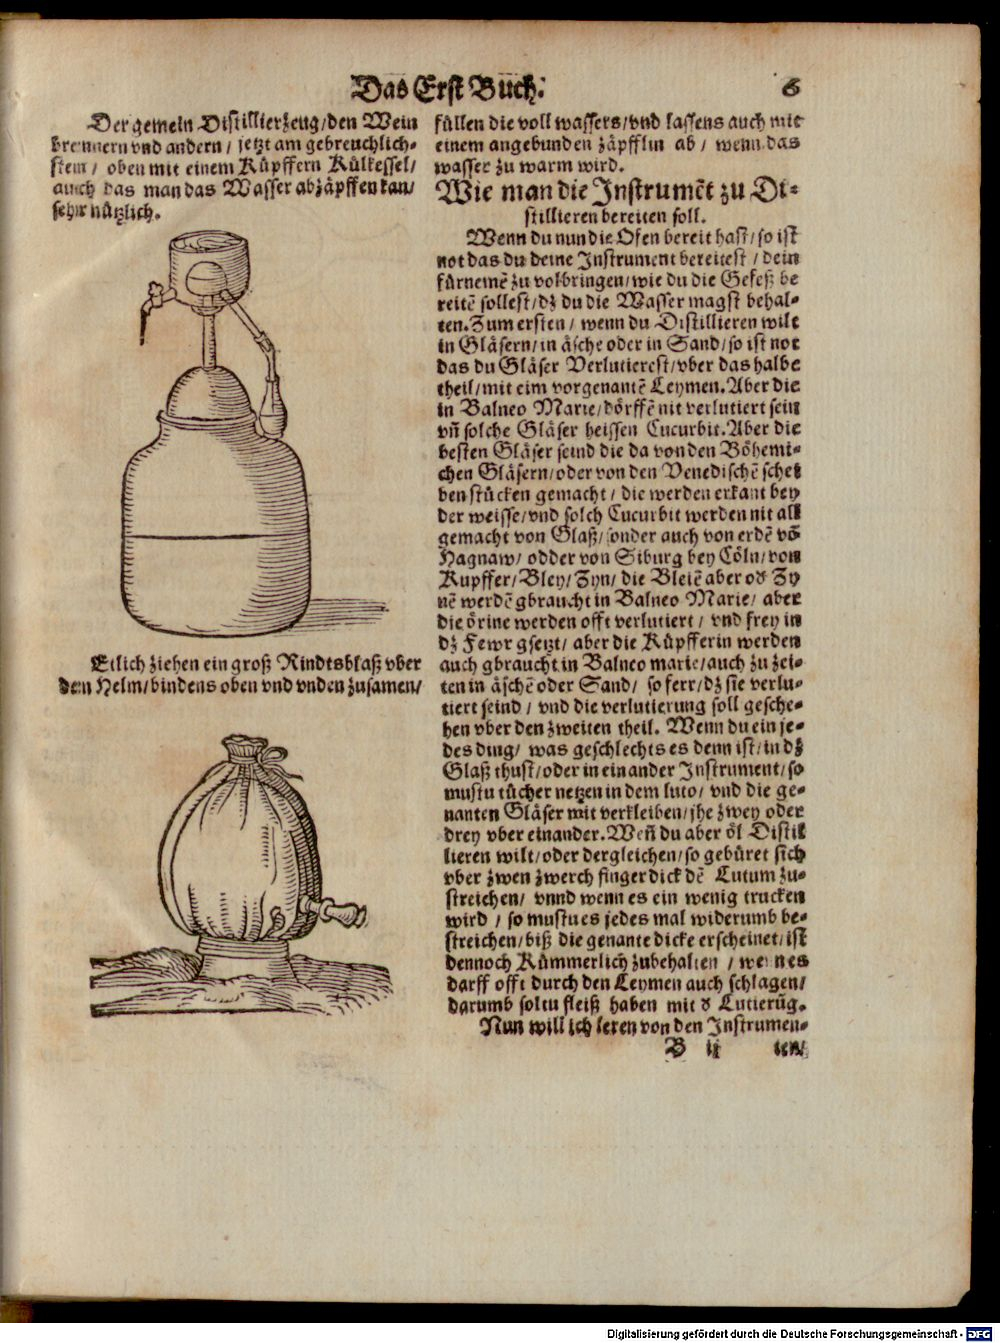 Das Erst Buch.
6
Der gemein Distillierzeug/den Wein
brennern vnd andern/ jetzt am gebreuchlich-
stem/ oben mit einem Küpffern Külkessel/
auch das man das Wasser abzäpffen kan/
sehr nützlich.
Etlich ziehen ein groß Rindtsblaß vber
den Helm/bindens oben vnd vnden zusamen/
füllen die voll wassers/vnd lassens auch mit
einem angebunden zäpfflin ab/ wenn das
wasser zu warm wird.
Wie man die Instrumēt zu Di-
stillieren bereiten soll.
Wenn du nun die Ofen bereit hast/so ist
not das du deine Instrument bereitest/dein
fürnemē zu volbringen/wie du die Gefeß be
reitē sollest/dz du die Wasser magst behal-
ten. Zum ersten/ wenn du Distillieren wilt
in Gläsern/in äsche oder in Sand/so ist not
das du Gläser Verlutierest/vber das halbe
theil/mit eim vorgenantē Leymen. Aber die
in Balneo Marie/dörffē nit verlutiert sein
vñ solche Gläser heissen Cucurbit. Aber die
besten Gläser seind die da von den Böhemi-
chen Gläsern/oder von den Venedischē schei
ben stücken gemacht/ die werden erkant bey
der weisse/vnd solch Cucurbit werden nit all
gemacht von Glaß/sonder auch von erdē vō
Hagnaw/ odder von Siburg bey Cöln/von
Kupffer/Bley/Zyn/ die Bleiē aber oď Zy
nē werdē gbraucht in Balneo Marie/ aber
die örine werden offt verlutiert/ vnd frey in
dz Fewr gsetzt/ aber die Küpfferin werden
auch gbraucht in Balneo marie/auch zu zei-
ten in äschē oder Sand/ so ferr/dz sie verlu-
tiert seind/ vnd die verlutierung soll gesche-
hen vber den zweiten theil. Wenn du ein je-
des ding/ was geschlechts es denn ist/in dz
Glaß thust/oder in ein ander Instrument/so
mustu tücher netzen in dem luto/ vnd die ge-
nanten Gläser mit verkleiben/jhe zwey oder
drey vber einander. Weñ du aber öl Distil
lieren wilt/oder dergleichen/so gebüret sich
vber zwen zwerch finger dick dē Lutum zu-
streichen/ vnnd wenn es ein wenig trucken
wird/ so mustu es jedes mal widerumb be-
streichen/biß die genante dicke erscheinet/ist
dennoch Kümmerlich zubehalten/ wenn es
darff offt durch den Leymen auch schlagen/
darumb soltu fleiß haben mit ď Lutierūg.
Nun will ich leren von den Instrumen-
B ij ten/
Digitalisierung gefördert durch die Deutsche Forschungsgemeinschaft - DFG